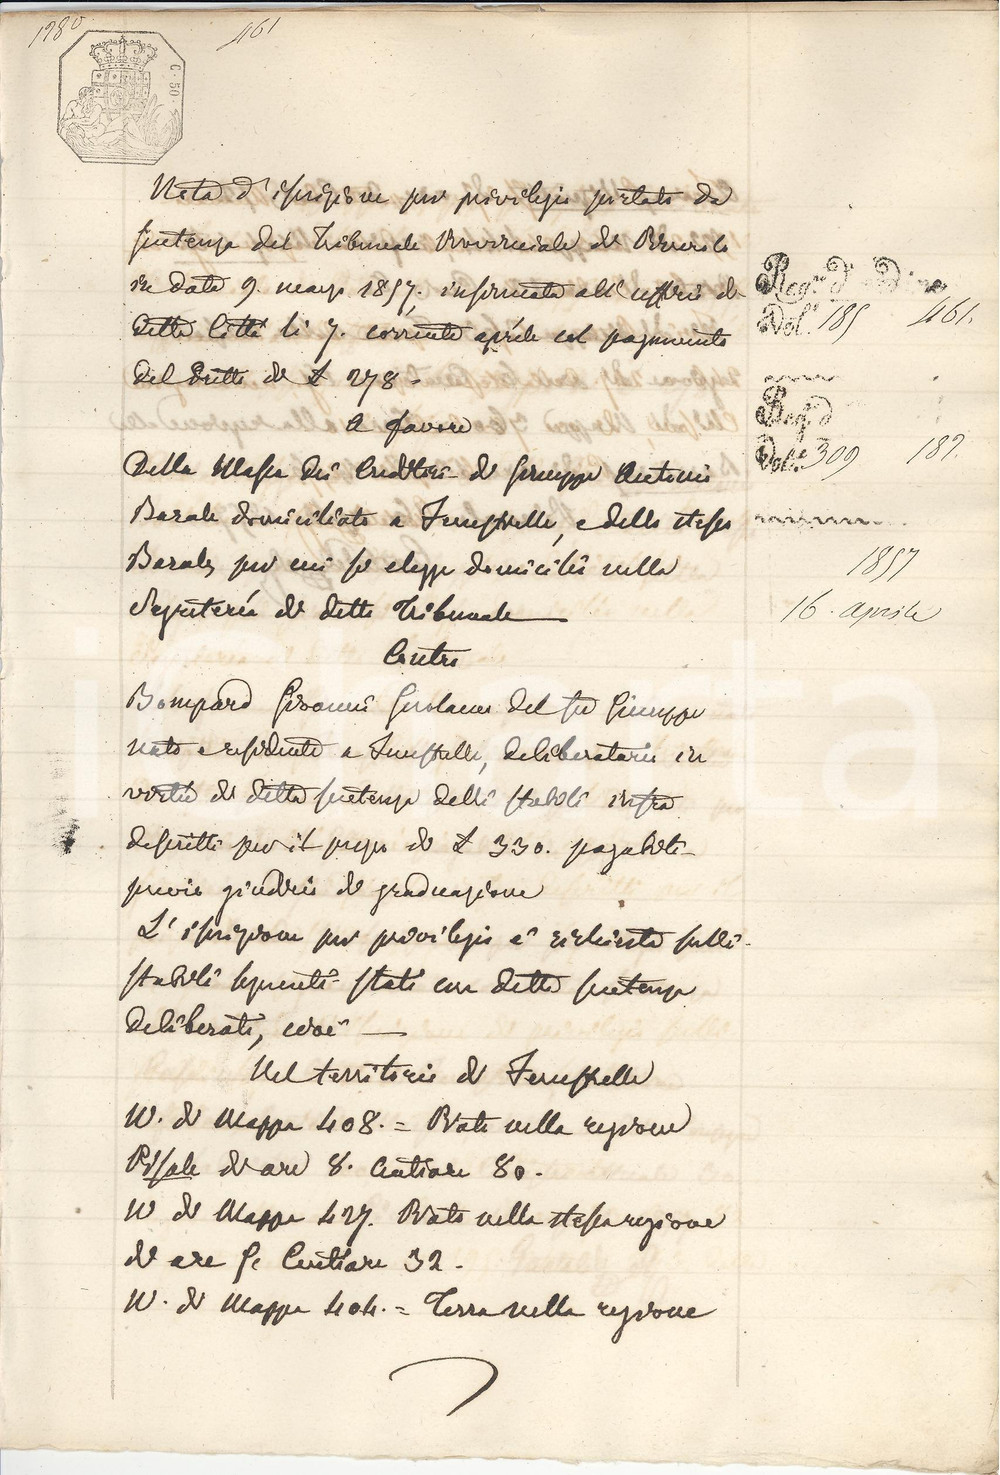 1980 461
C. 50.
Nota d'iscrizione per privilegio portato da
sentenza del Tribunale Provinciale di Pinerolo
in data 9. marzo 1857. insinuata all'ufficio di
detta Città li 7. corrente aprile col pagamento
del dritto di £ 278.
A favore
Della Massa dei Creditori di Giuseppe Antonio
Barale domiciliato a Fenestrelle, e dello stesso
Barale, per cui si elegge domicilio nella
Segreteria di detto Tribunale
Contro
Bompard Giovanni Gerolamo del fu Giuseppe
nato e residente a Fenestrelle, deliberatario in
virtù di detta sentenza delli stabili infra
descritti per il prezzo di £ 330. pagabili
previo giudicio di graduazione
L'iscrizione per privilegio è richiesta sulli
stabili seguenti stati con detta sentenza
deliberati, cioè
Nel territorio di Fenestrelle
N. di Mappa 408. = Prato nella regione
di are 8. Centiare 80.
N. di Mappa 427. Prato nella stessa regione
di are Centiare 32.
N. di Mappa 404. = Terra nella regione
Reg. d'
Vol. 185 461.
Reg. d
Vol. 309 187.
1857
16. aprile